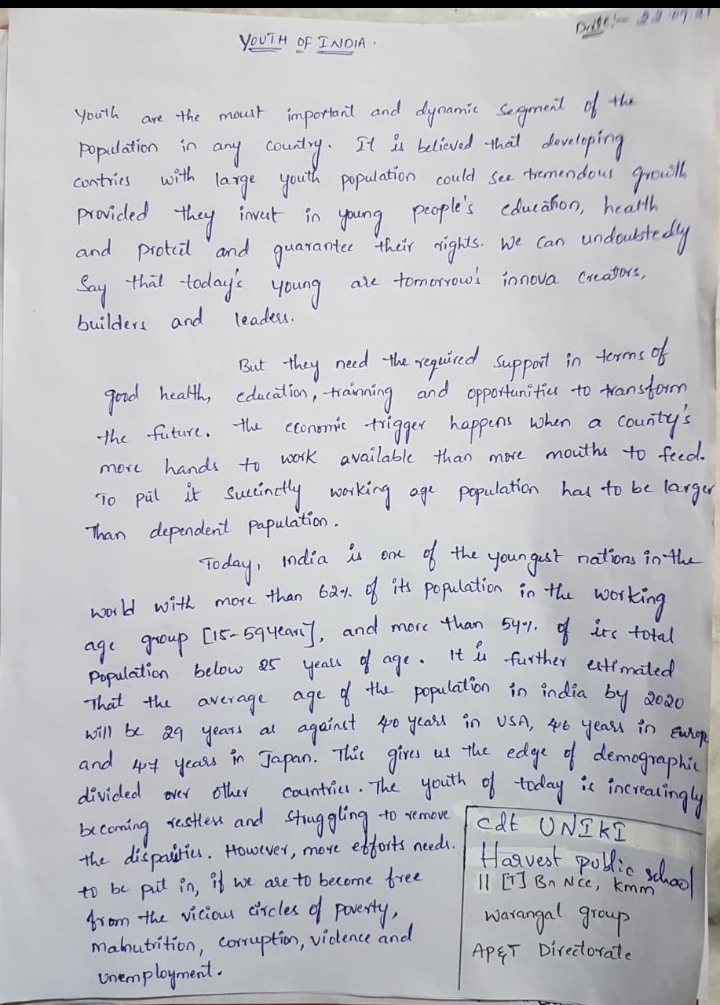 Date:- 22.09.21
YOUTH OF INDIA.
Youth are the moust important and dynamic segment of the
population in any country. It is believed that developing
contries with large youth population could see tremendous growth
provided they invest in young people's education, health
and protect and guarantee their rights. We can undoubtedly
Say that today's young are tomorrow's innova creators,
builders and leaders.
But they need the required support in terms of
good health, education, trainning and opportunities to transform
the future. the economic trigger happens when a county's
more hands to work available than more mouths to feed.
To put it succinctly working age population has to be larger
Than dependent papulation.
Today, india is one of the youngest nations in the
world with more than 62% of its population in the working
age group [15-59years], and more than 54% of its total
population below 25 years of age. It is further estimated
That the average age of the population in india by 2020
will be 29 years as against 40 years in USA, 46 years in Europe
and 47 years in Japan. This gives us the edge of demographic
divided over other countries. The youth of today is increasingly
becoming restless and struggling to remove
the disparities. However, more efforts needs.
to be put in, if we are to become free
from the vicious circles of poverty,
malnutrition, corruption, violence and
unemployment.
cdt UNIKI
Harvest public school
11 [T] Bn NCC, kmm
Warangal group
AP&T Directorate